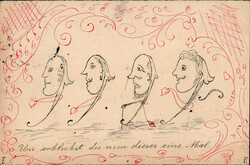 Uns erblickst du nun dieser eine Mal